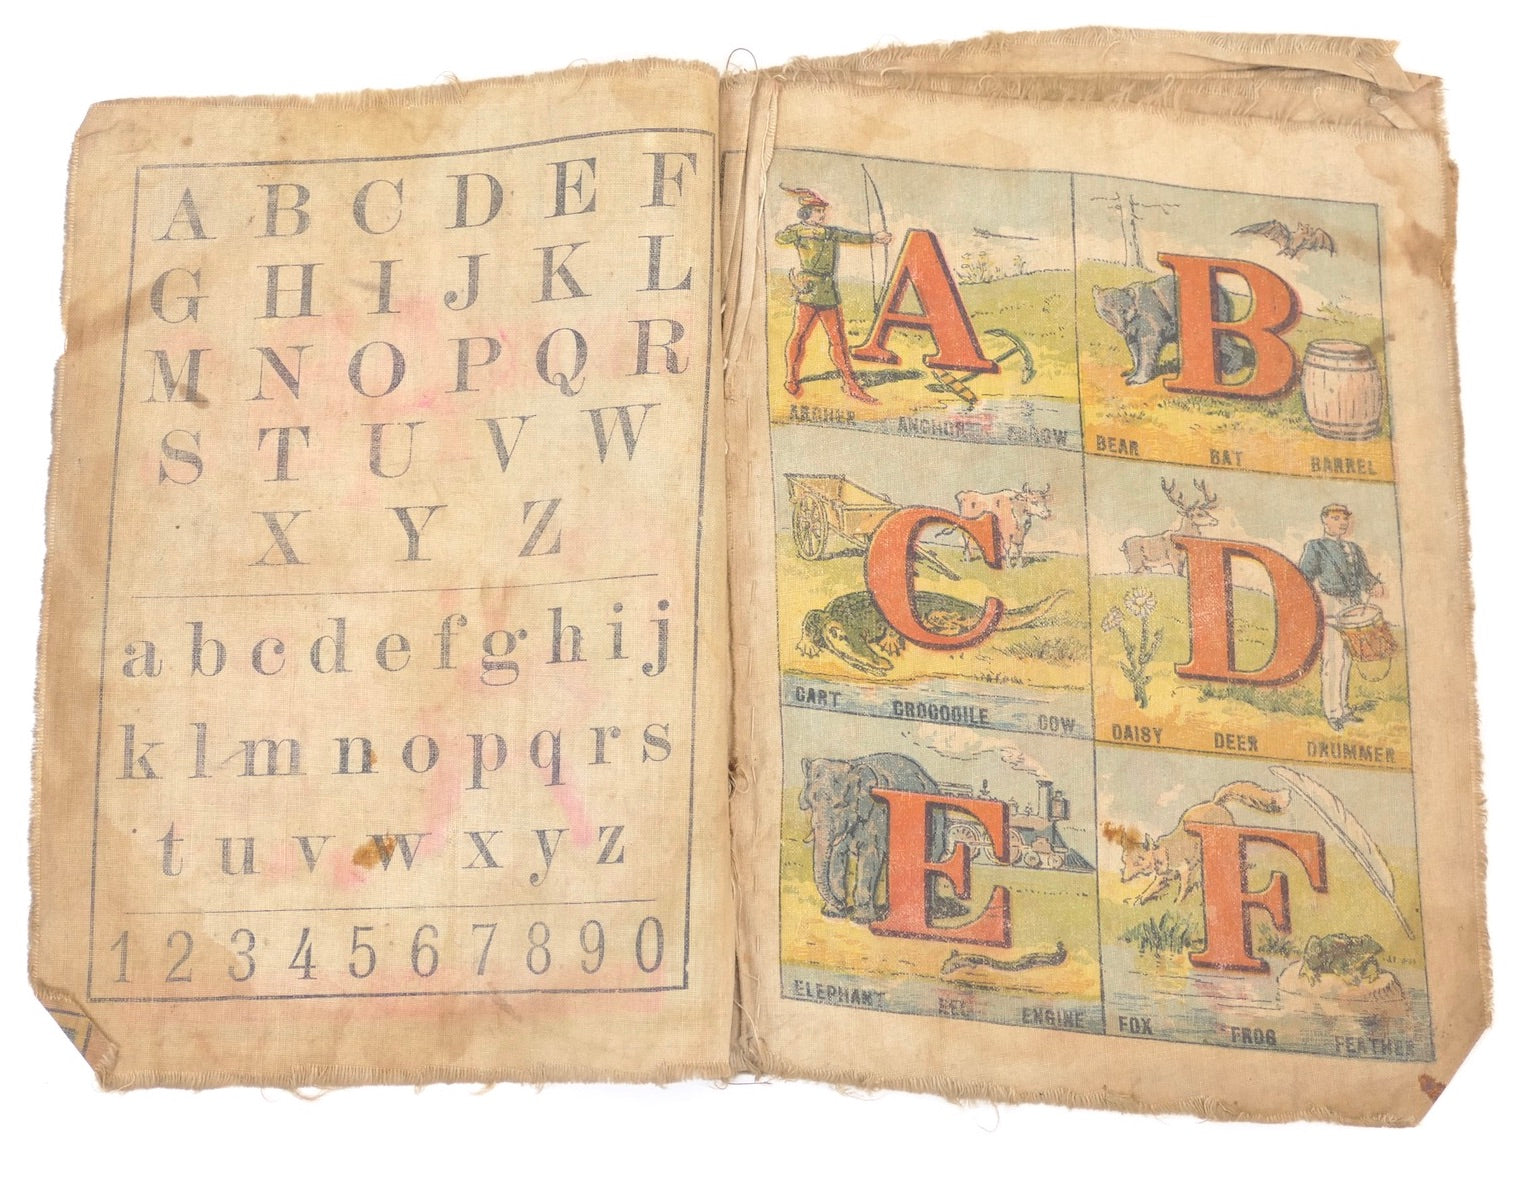 A B C D E F
G H I J K L
M N O P Q R
S T U V W
X Y Z
a b c d e f g h i j
k l m n o p q r s
t u v w x y z
1 2 3 4 5 6 7 8 9 0
A
ARCHER ANCHOR ARROW
B
BEAR BAT BARREL
C
CART CROCODILE COW
D
DAISY DEER DRUMMER
E
ELEPHANT EEL ENGINE
F
FOX FROG FEATHER